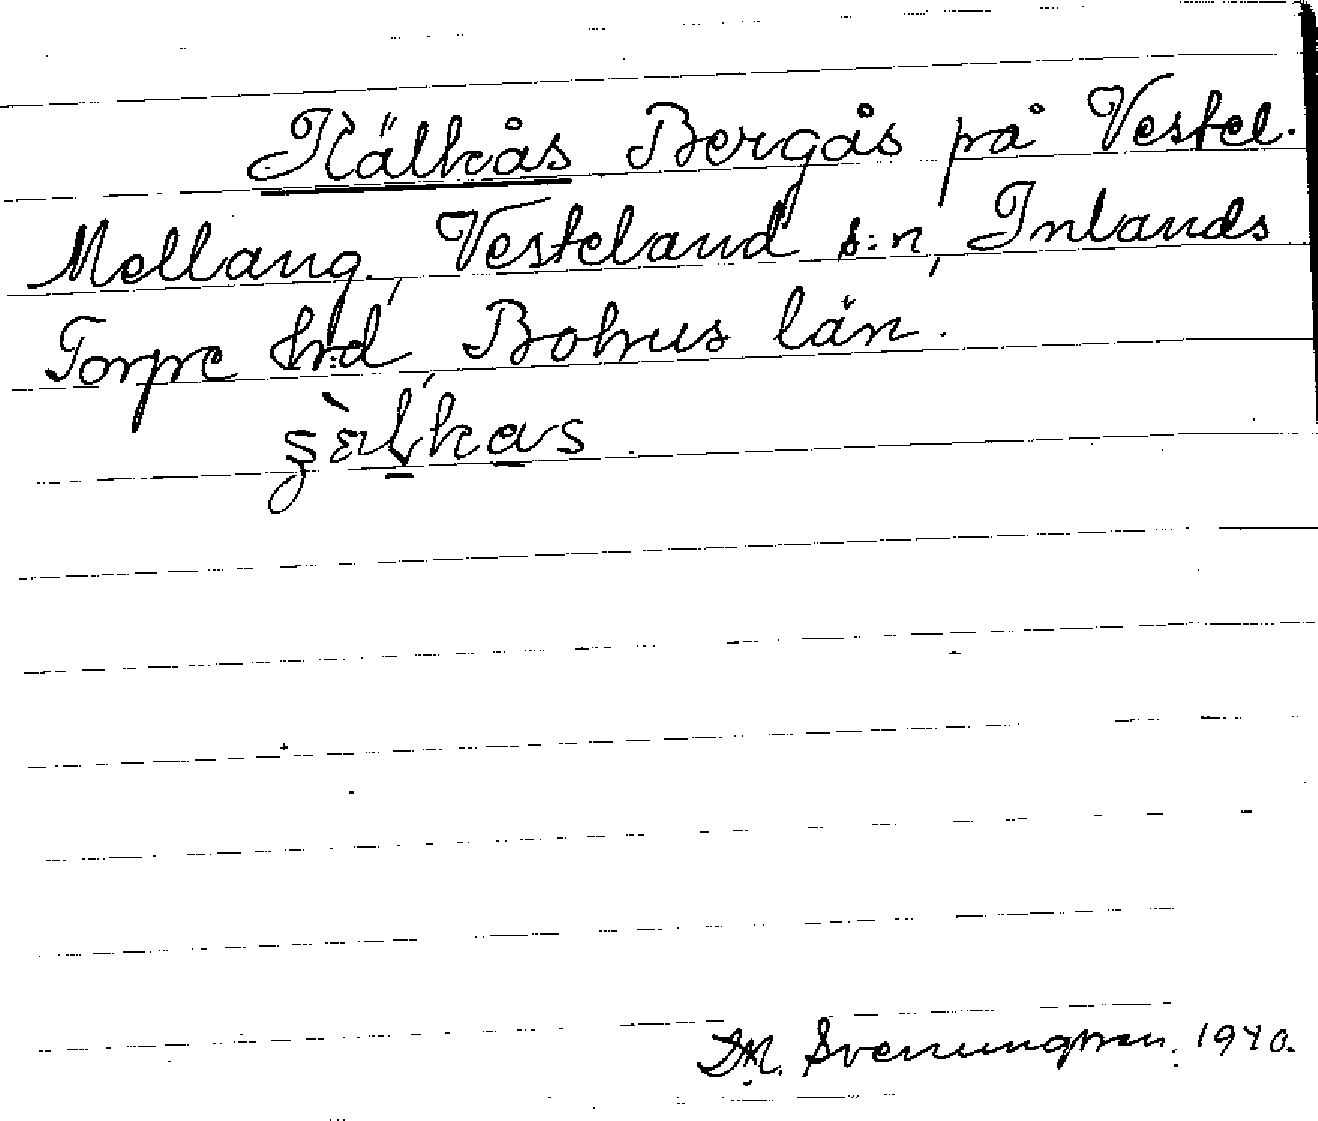 Kälkås Bergås på Vestel.
Mellang, Vesteland s:n, Inlands
Torpe hrd, Bohus län.
D.M. Svenungsson. 1940.